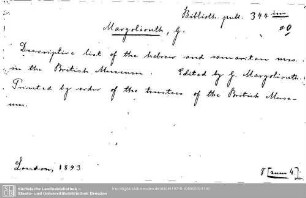 Biblioth. publ. 344
Margoliouth, G.
Descriptive list of the hebrew and samaritan mss.
in the British Museum. Edited by G Margoliouth.
Printed by order of the trustees of the British Muse-
um.
London, 1893
Sächsische Landesbibliothek -
Staats- und Universitätsbibliothek Dresden